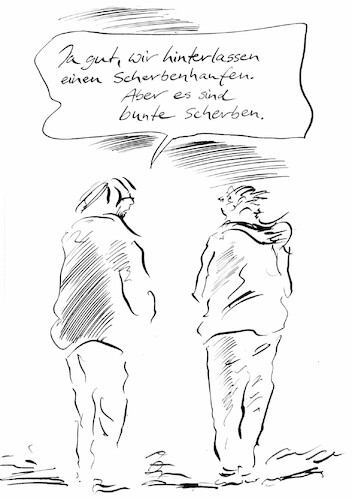 Ja gut, wir hinterlassen
einen Scherbenhaufen.
Aber es sind
bunte Scherben.